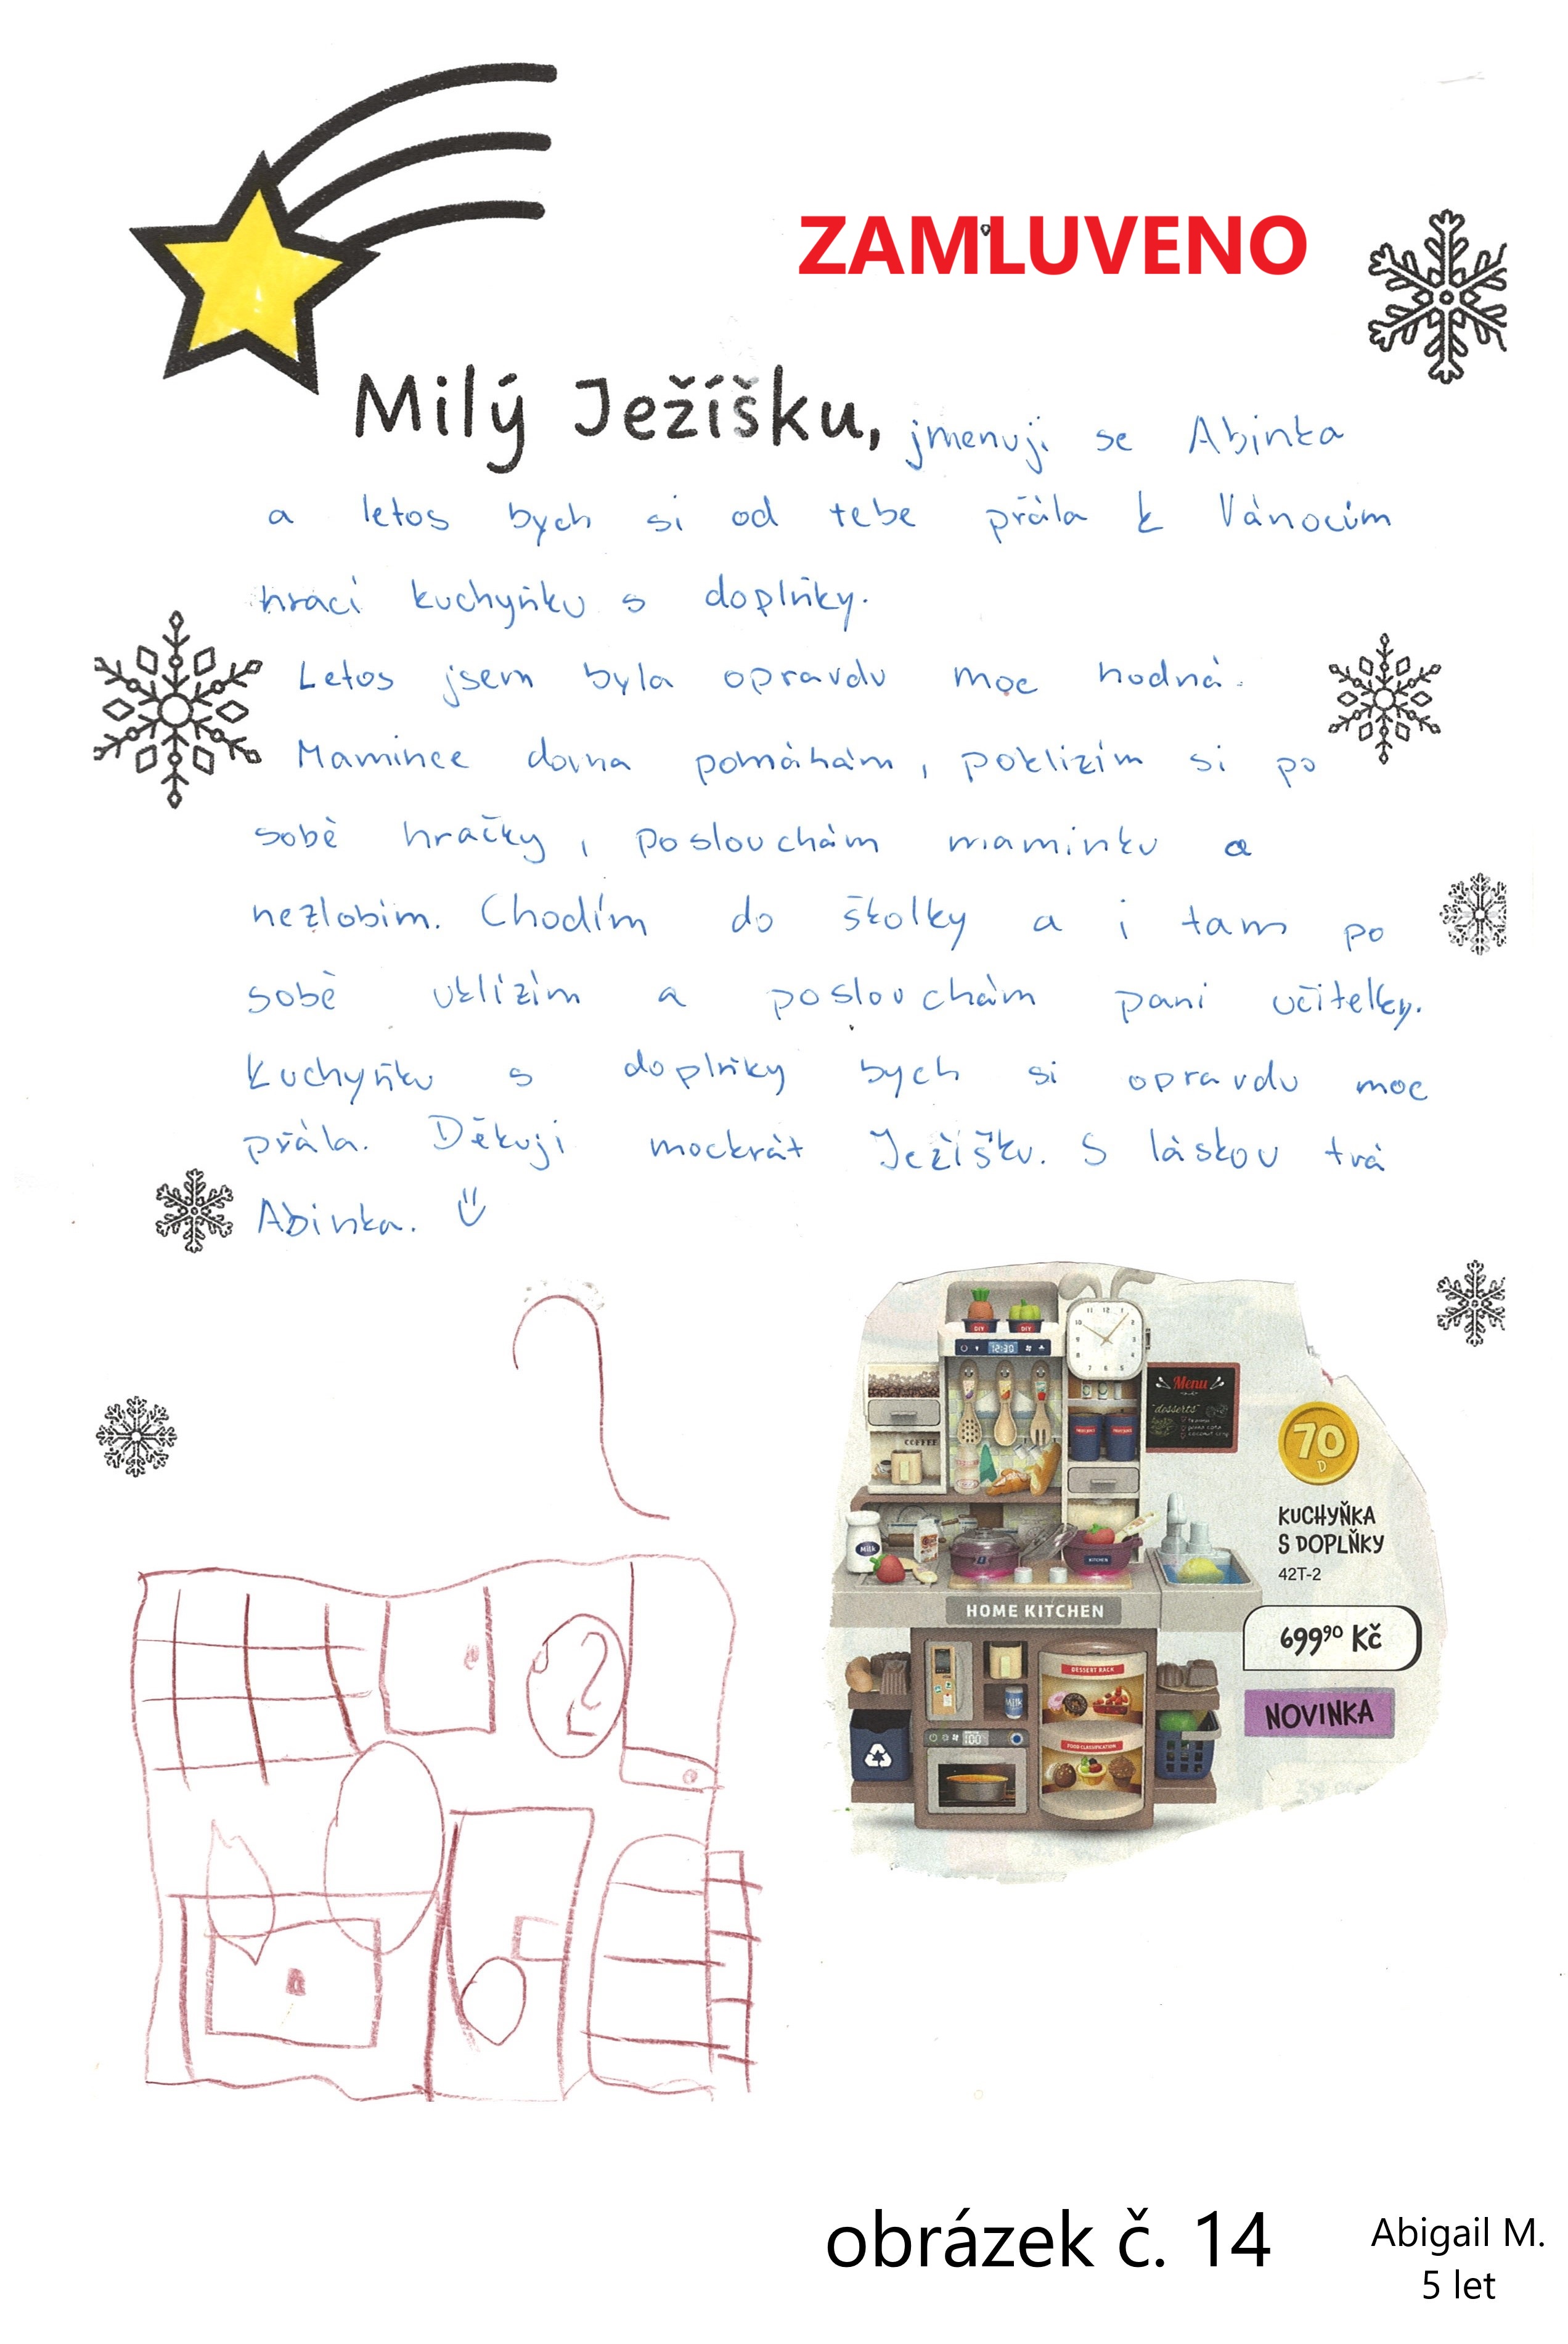 ZAMLUVENO
Milý Ježíšku, jmenuji se Abinka
a letos bych si od tebe přála k Vánocům
hrací kuchyňku s doplňky.
Letos jsem byla opravdu moc hodná.
Mamince doma pomáhám, poklízím si po
sobě hračky, poslouchám maminku a
nezlobím. Chodím do školky a i tam po
sobě uklízím a poslouchám paní učitelky.
Kuchyňku s doplňky bych si opravdu moc
přála. Děkuji mockrát Ježíšku. S láskou tvá
Abinka.
DIY DIY
12:30
12 1 2 3 4 5 6 7 8 9 10 11
Menu
desserts
COFFEE
70
D
KUCHYŇKA
S DOPLŇKY
42T-2
Milk
HOME KITCHEN
699⁹⁰ Kč
DESSERT RACK
Milk
NOVINKA
FOOD CLASSIFICATION
obrázek č. 14
Abigail M.
5 let